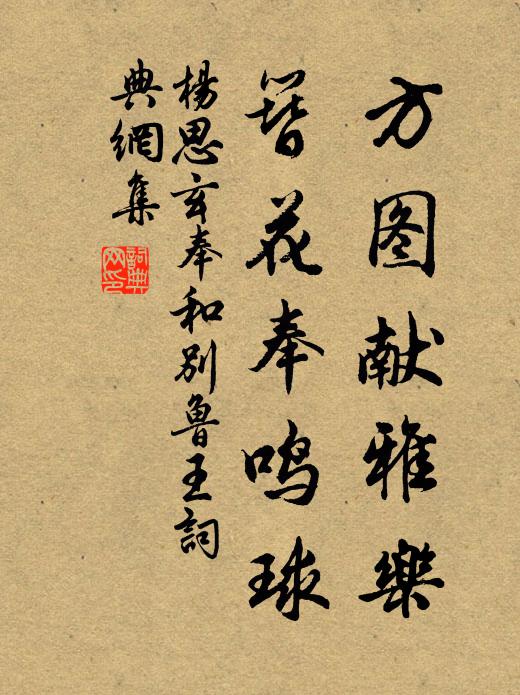 方图献雅樂
簪花奉鸣球
楊思玄奉和别魯王詞
典網集
詞典网印